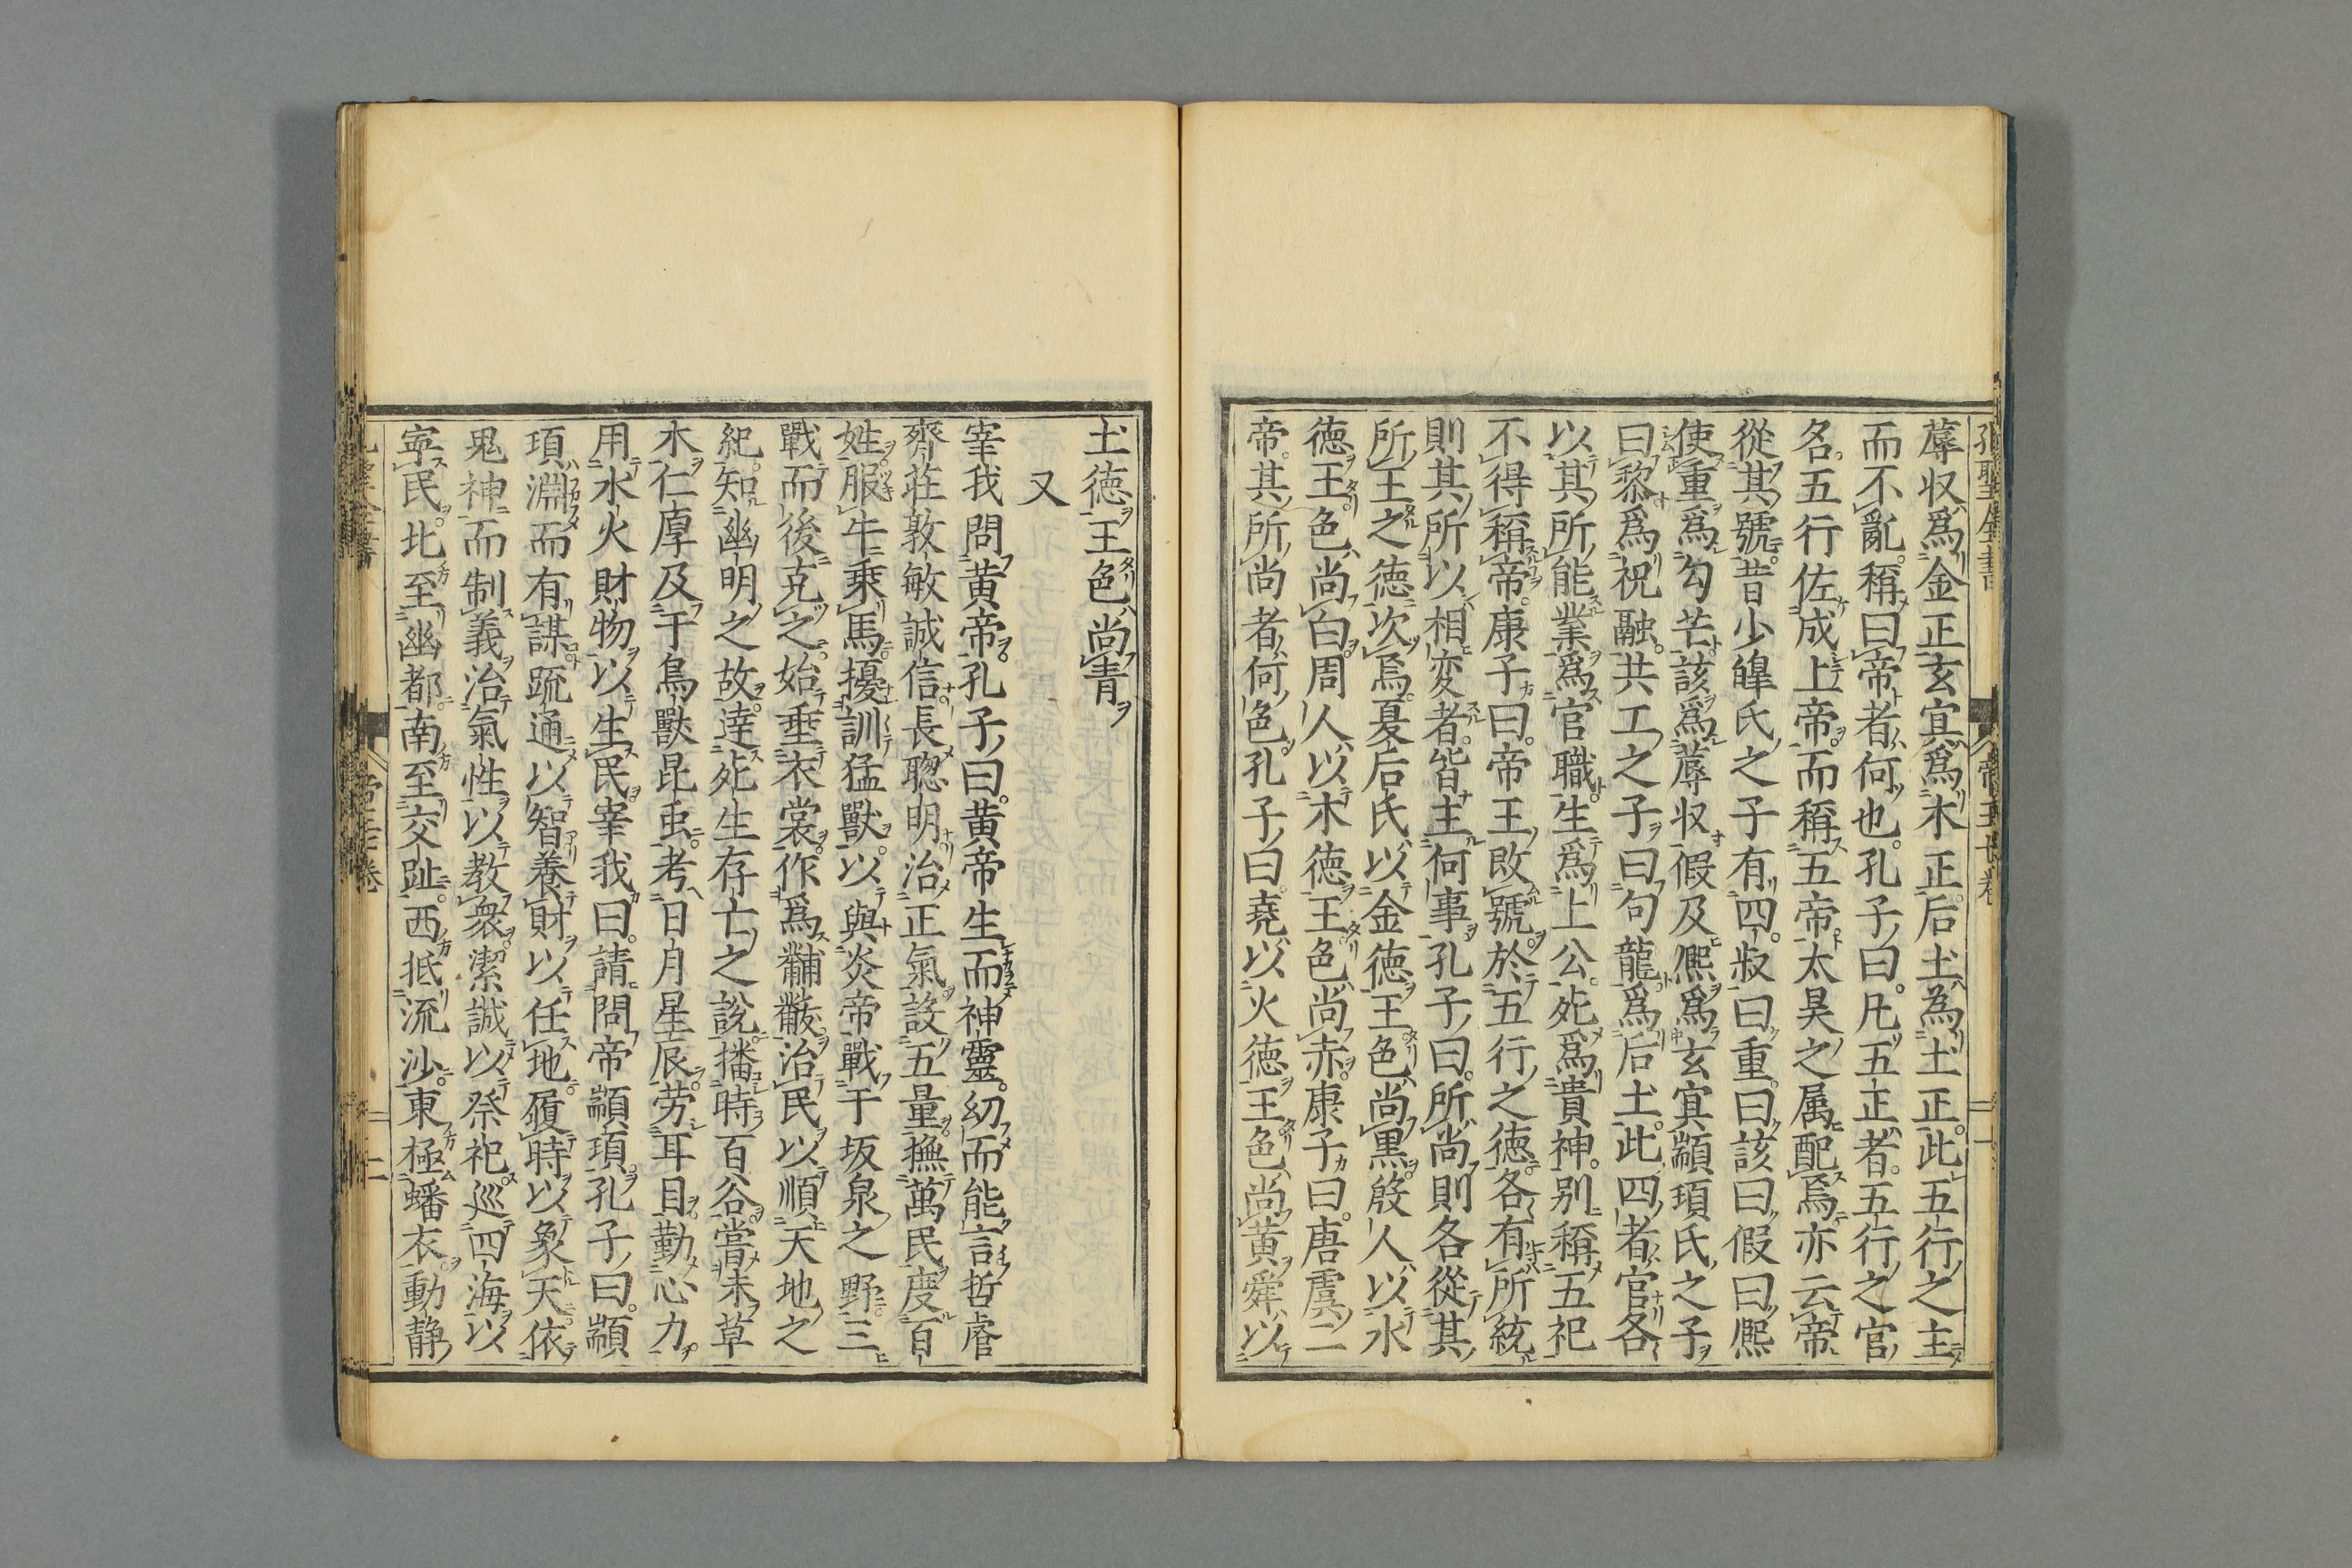 蓐収爲金正玄㝠爲木正后土為土正此五行之主
而不亂稱曰帝者何也孔子曰凡五正者五行之官
名五行佐成上帝而稱五帝太昊之属配焉亦云帝
從其號昔少皥氏之子有四叔曰重曰該曰假曰熈
使重爲勾芒該爲蓐収假及熈爲玄㝠顓頊氏之子
曰黎爲祝融共工之子曰句龍爲后土此四者官各
以其所能業爲官職生爲上公死爲貴神别稱五祀
不得稱帝康子曰帝王改號於五行之徳各有所統
則其所以相変者皆主何事孔子曰所尚則各從其
所王之徳次焉夏后氏以金徳王色尚黒殷人以水
徳王色尚白周人以木徳王色尚赤康子曰唐虞二
帝其所尚者何色孔子曰堯以火徳王色尚黄舜以
土徳王色尚青
又
宰我問黄帝孔子曰黄帝生而神靈幼而能言哲睿
齊莊敦敏誠信長聦明治正氣設五量撫萬民度百
姓服牛乗馬擾訓猛獸以與炎帝戰于坂泉之野三
戰而後克之始垂衣裳作爲黼黻治民以順天地之
紀知幽明之故逹死生存亡之說播時百谷嘗未草
木仁厚及于鳥獸昆虫考日月星辰劳耳目勤心力
用水火財物以生民宰我曰請問帝顓頊孔子曰顓
頊淵而有謀疏通以智養財以任地履時以象天依
鬼神而制義治氣性以教衆潔誠以祭祀巡四海以
寕民北至幽都南至交趾西抵流沙東極蟠衣動静